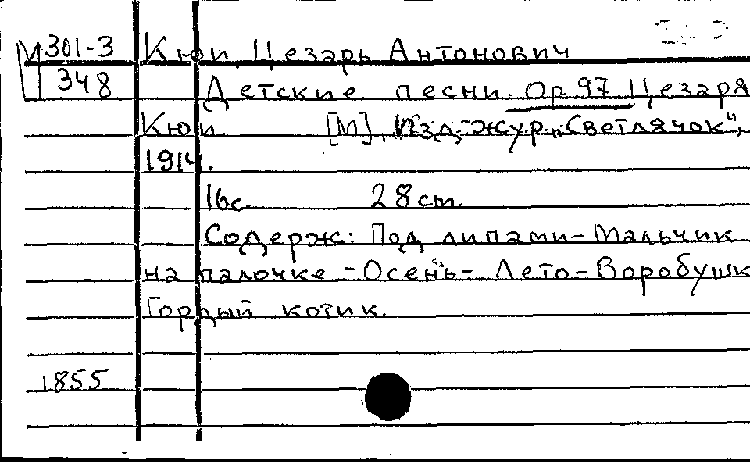 М 301-3 Кюи, Цезарь Антонович
348 Детские песни. Op. 97 Цезаря
Кюи. [М], Изд. жур. „Светлячок",
1914.
16с. 28cm.
Содерж: Под липами-Мальчик
на палочке-Осень-Лето-Воробушк
Гордый котик.
1855